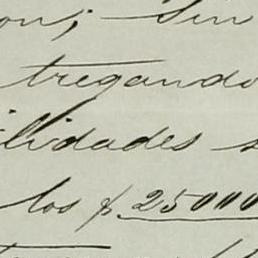 on; sin
tregando
ilidades s
los $ 25000